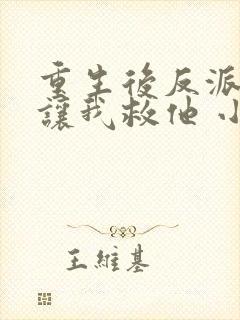 重生後反派
讓我救他 小
王維基